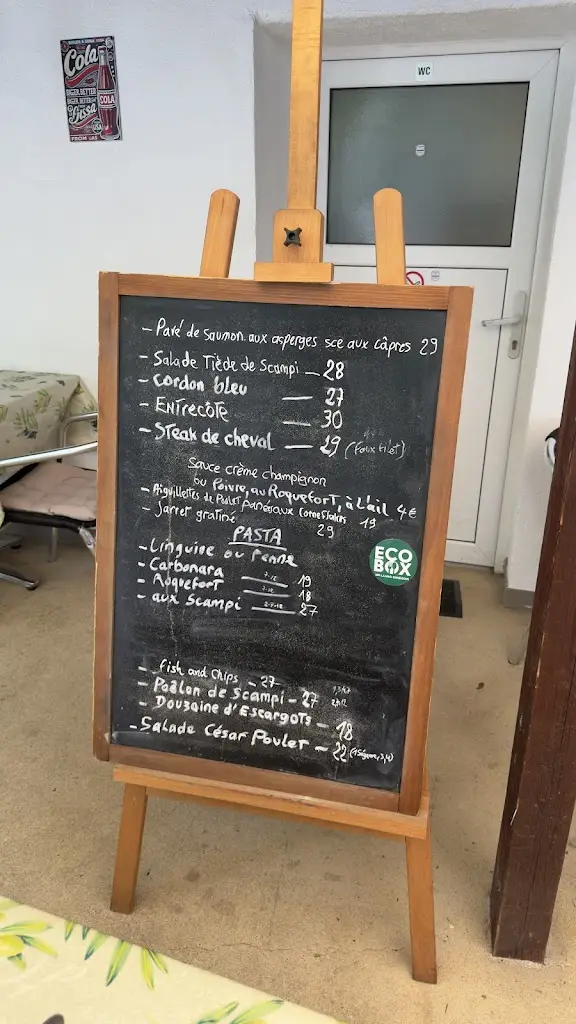 Cola
BIGGER, BETTER
COLA
FROM LAS
WC
- Pavé de saumon aux asperges sce aux câpres 29
- Salade Tiède de Scampi — 28
- Cordon bleu — 27
- Entrecôte — 30
- Steak de cheval — 29 (Faux filet)
Sauce crème champignon
ou Poivre, au Roquefort, à l'ail 4€
- Aiguillettes de Poulet Panés aux Corneflakes 19
- Jarret gratiné 29
PASTA
- Linguine ou Penne
- Carbonara — 19
- Roquefort — 18
- aux Scampi — 27
- Fish and Chips - 27
- Poêlon de Scampi - 27
- Douzaine d'Escargots - 18
- Salade César Poulet - 22
ECO
BOX